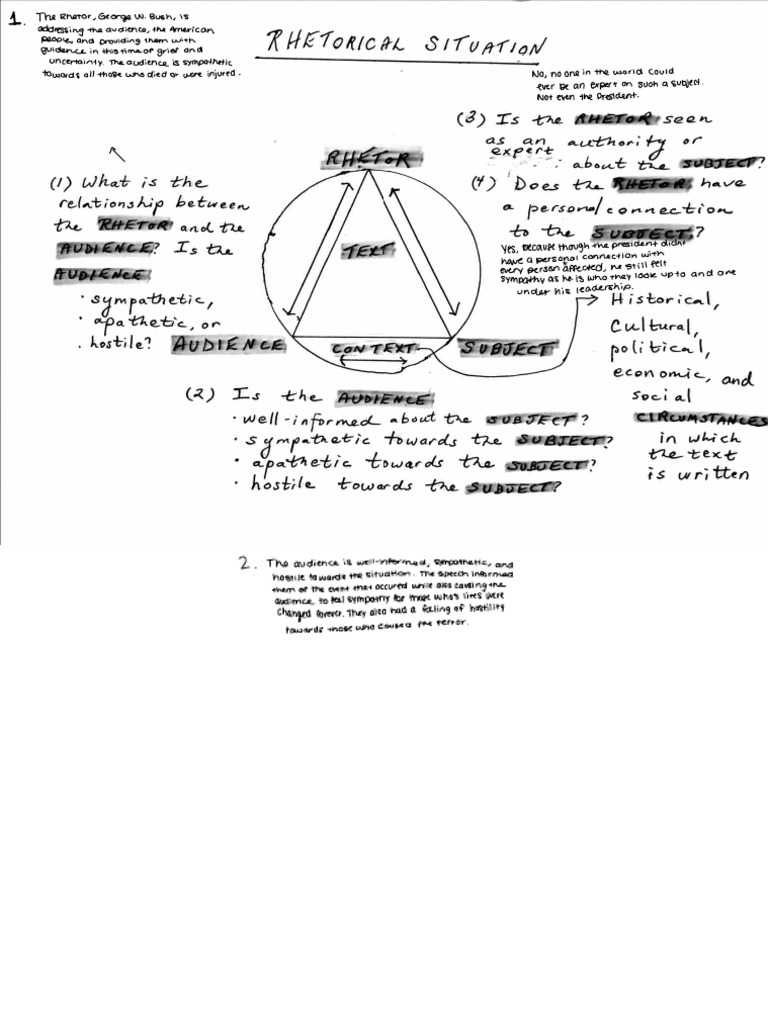 1. The Rhetor, George W. Bush, is
addressing the audience, the American
people, and providing them with
guidence in this time of grief and
uncertainty. The audience is sympathetic
towards all those who died or were injured.
RHETORICAL SITUATION
No, no one in the world could
ever be an expert on such a subject.
Not even the President.
(3) Is the RHETOR seen
as an authority or
expert about the SUBJECT?
(4) Does the RHETOR have
a personal connection
to the SUBJECT?
Yes, because though the president didnt
have a personal connection with
every person affected, he still felt
sympathy as he is who they look up to and one
under his leadership.
(1) What is the
relationship between
the RHETOR and the
AUDIENCE? Is the
AUDIENCE
· sympathetic,
· apathetic, or
. hostile?
RHETOR
TEXT
AUDIENCE
CONTEXT
SUBJECT
Historical,
Cultural,
political,
economic, and
social
CIRCUMSTANCES
in which
the text
is written
(2) Is the AUDIENCE
· well-informed about the SUBJECT?
· sympathetic towards the SUBJECT?
· apathetic towards the SUBJECT?
· hostile towards the SUBJECT?
2. The audience is well-informed, sympathetic, and
hostile towards the situation. The speech informed
them of the event that occured while also causing the
audience to feel sympathy for those who's lives were
changed forever. They also had a feeling of hostility
towards those who caused the terror.